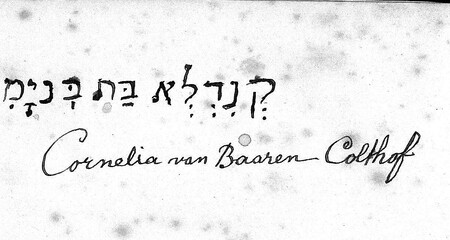 קֶנִדְלְא בַּת בְּנִיָמִ
Cornelia van Baaren Colthof